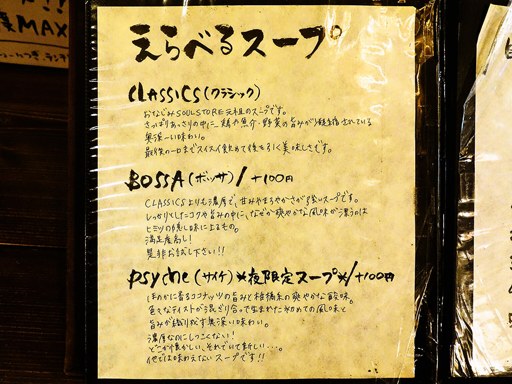 MAX
えらべるスープ
CLASSICS(クラシック)
おなじみSOULSTORE元祖のスープです。
さっぱりあっさりの中に、鶏や魚介・野菜の旨みが凝縮されている
奥深い味わい。
最後の一口までスイスイ飲めて後を引く美味しさです。
BOSSA(ボッサ)/+100円
CLASSICSよりも濃厚で、甘みやまろやかさが強いスープです。
しっかりとしたコクや旨みの中に、なぜか爽やかな風味が漂うのは
ヒミツの隠し味によるもの。
満足度高し!
是非お試し下さい!!
psyche(サイケ)*夜限定スープ*/+100円
ほのかに香るココナッツの旨みと柑橘系の爽やかな酸味。
色々なテイストが混ざり合って生まれた初めての風味と
旨みが織りなす奥深い味わい。
濃厚なのにしつこくない!
どこか懐かしい、それでいて新しい…。
他では味わえないスープです!!